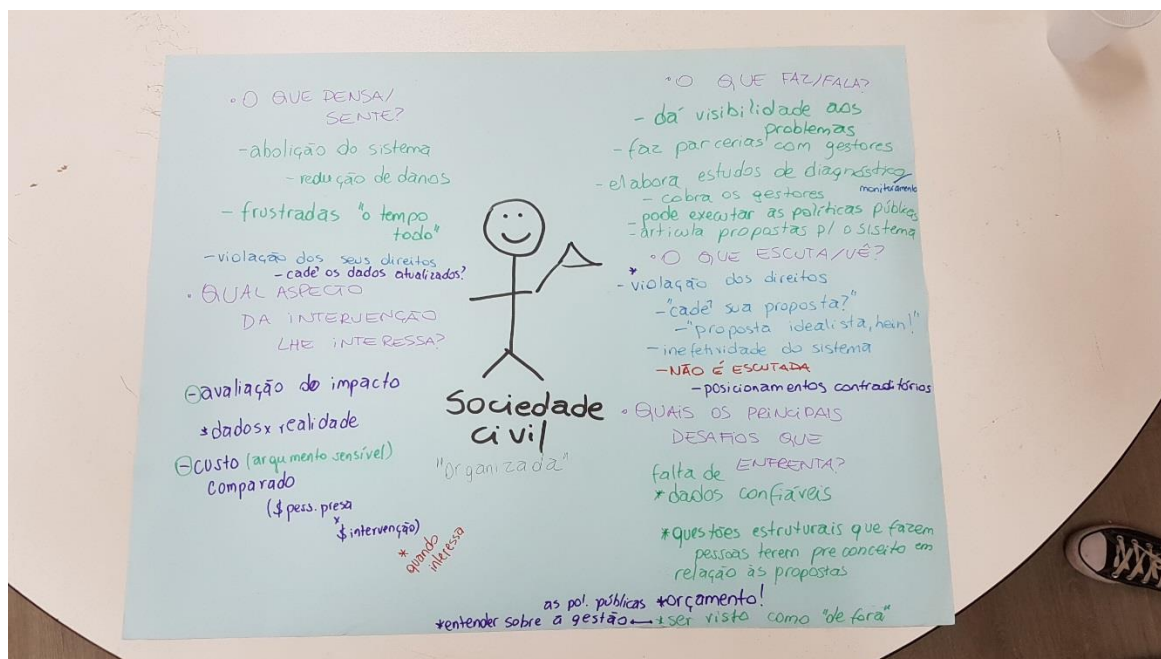 • O QUE PENSA/
SENTE?
-abolição do sistema
-redução de danos
- frustradas "o tempo
todo"
-violação dos seus direitos
- cadê os dados atualizados?
• QUAL ASPECTO
DA INTERVENÇÃO
LHE INTERESSA?
-avaliação do impacto
*dados x realidade
-custo (argumento sensível)
comparado
($ pess. presa
x
$ intervenção)
* quando
interessa
Sociedade
civil
"organizada"
• O QUE FAZ/FALA?
- dá visibilidade aos
problemas
- faz parcerias com gestores
- elabora estudos de diagnóstico
monitoramento
- cobra os gestores
- pode executar as políticas públicas
- articula propostas p/ o sistema
• O QUE ESCUTA/VÊ?
*
- violação dos direitos
- "cadê sua proposta?"
- "proposta idealista, hein!"
- inefetividade do sistema
- NÃO É ESCUTADA
- posicionamentos contraditórios
• QUAIS OS PRINCIPAIS
DESAFIOS QUE
ENFRENTA?
falta de
* dados confiáveis
* questões estruturais que fazem
pessoas terem preconceito em
relação às propostas
as pol. públicas *orçamento!
*entender sobre a gestão *ser visto como "de fora"